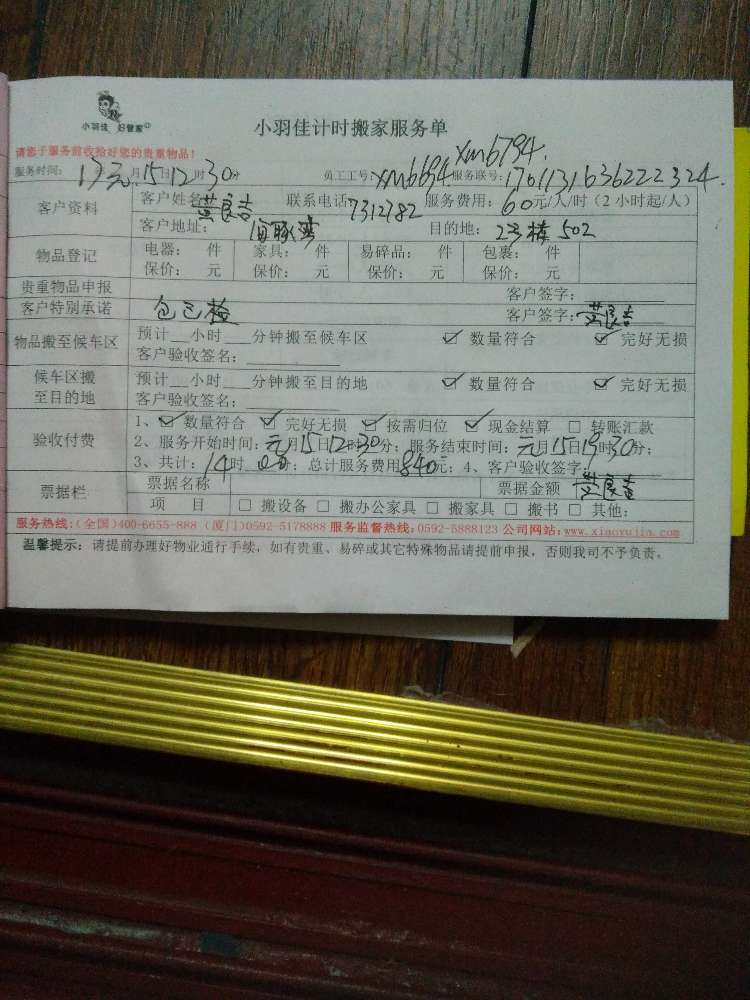 小羽佳 好管家
小羽佳计时搬家服务单
请您于服务前收拾好您的贵重物品！
xm6794.
服务时间： 17年元月15日12时30分 员工工号：xm6694 服务联号：1701131636222324.
客户资料 客户姓名：黄良吉 联系电话：7312782 服务费用：60元/人/时（2小时起/人）
客户地址： 海豚湾 目的地：2号楼502
物品登记 电器： 件 家具： 件 易碎品： 件 包裹： 件
保价： 元 保价： 元 保价： 元 保价： 元
贵重物品申报 客户签字：
客户特别承诺 包已检 客户签字：黄良吉
物品搬至候车区 预计__小时___分钟搬至候车区 ☑ 数量符合 ☑ 完好无损
客户验收签名：
候车区搬至目的地 预计__小时___分钟搬至目的地 ☑ 数量符合 ☑ 完好无损
客户验收签名：
验收付费 1、☑ 数量符合 ☑ 完好无损 ☑ 按需归位 ☑ 现金结算 □ 转账汇款
2、服务开始时间：元月15日12时30分；服务结束时间：元月15日19时30分；
3、共计：14时 0分；总计服务费用840元；4、客户验收签字：黄良吉
票据栏 票据名称 票据金额
项 目 □ 搬设备 □ 搬办公家具 □ 搬家具 □ 搬书 □ 其他：
服务热线：(全国)400-6655-888 (厦门)0592-5178888 服务监督热线：0592-5888123 公司网站：www.xiaoyujia.com
温馨提示：请提前办理好物业通行手续，如有贵重、易碎或其它特殊物品请提前申报，否则我司不予负责。